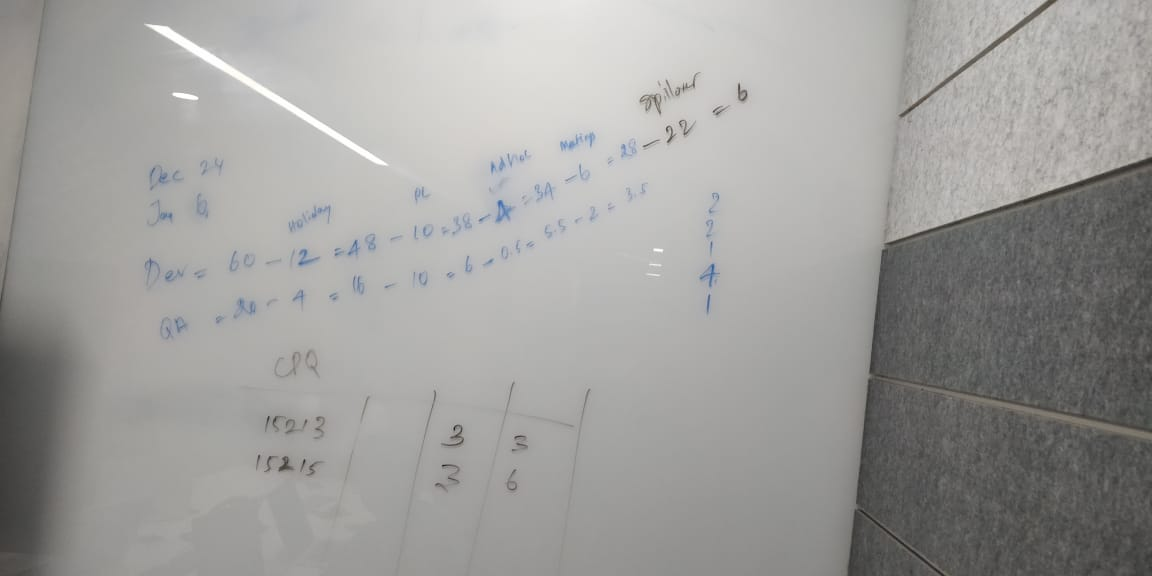 Spillover
Dec 24
Jan 6
Holiday PL Adhoc Meetings
Dev = 60 - 12 = 48 - 10 = 38 - 4 = 34 - 6 = 28 - 22 = 6
QA = 20 - 4 = 16 - 10 = 6 - 0.5 = 5.5 - 2 = 3.5
2
2
1
4
1
CPQ
15213 3 3
15215 3 6